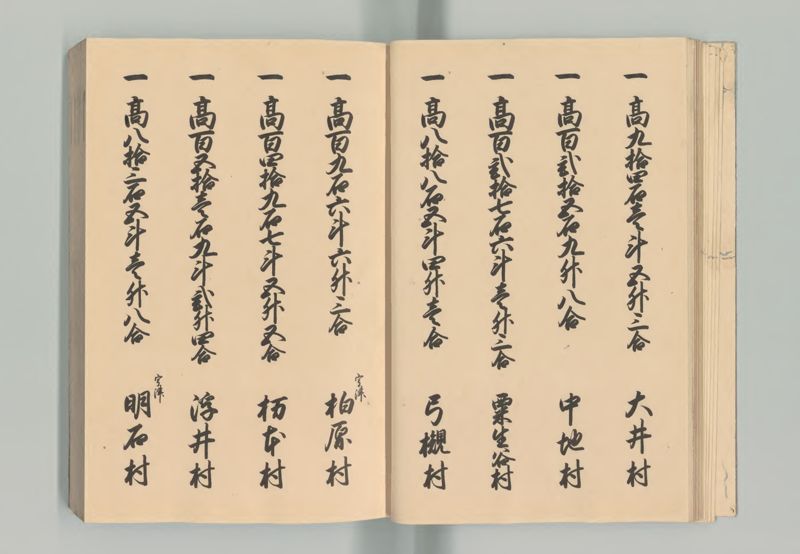 一 高九拾四石壱斗五升三合 大井村
一 高百弐拾五石九升八合 中地村
一 高百弐拾七石六斗壱升三合 粟生谷村
一 高八拾八石五斗四升壱合 弓槻村
一 高百九石六斗六升三合 柏原村
一 高百四拾九石七斗五升五合 杤本村
一 高百五拾壱石九斗弐升四合 浮井村
一 高八拾三石五斗壱升八合 明石村